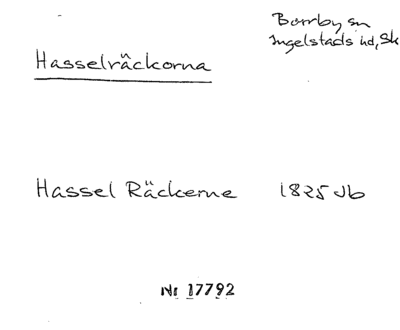 Borrby sn
Ingelstads hd, Sk
Hasselräckorna
Hassel Räckerne 1825 Jb
Nr 17792